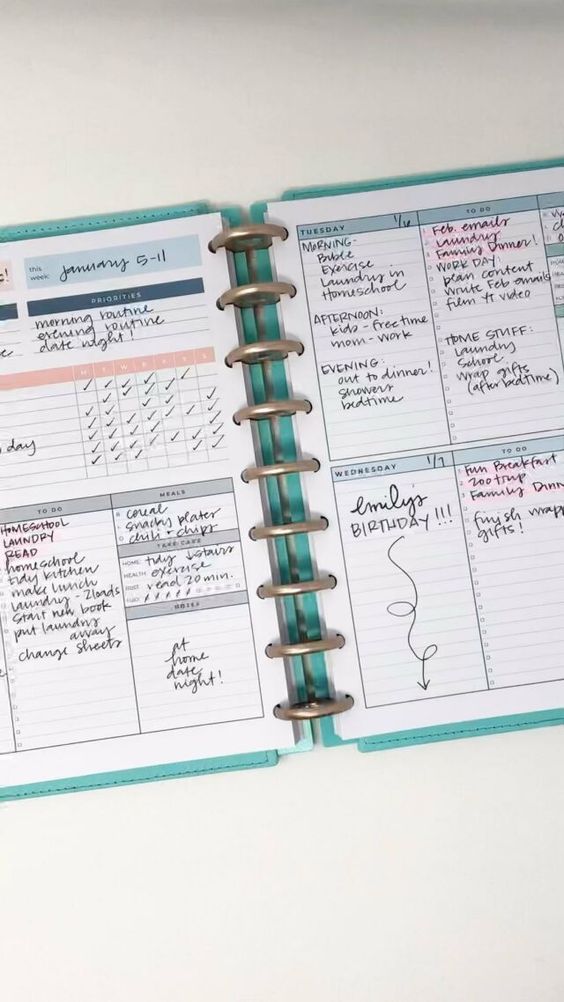 this
week:
january 5-11
PRIORITIES
morning routine
evening routine
date night!
M T W T F S S
day
TO DO
HOMESCHOOL
LAUNDRY
READ
homeschool
tidy kitchen
make lunch
laundry - 2 loads
start new book
put laundry
away
change sheets
MEALS
cereal
snacky plates
chili + chips
TAKE CARE
HOME: tidy ↓stairs
HEALTH: exercise
read 20 min.
H2O:
NOTES
at
home
date
night!
TUESDAY 1/6
MORNING-
Bible
Exercise
Laundry in
Homeschool
AFTERNOON:
kids - free time
mom - work
EVENING:
out to dinner!
showers
bedtime
TO DO
Feb. emails
Laundry
Family Dinner!
WORK DAY:
plan content
Write Feb emails
film YT video
HOME STUFF:
Laundry
School
wrap gifts
(after bedtime)
WEDNESDAY 1/7
emily's
BIRTHDAY!!!
TO DO
Fun Breakfast
zoo trip
Family Dinn
finish wrapp
gifts!